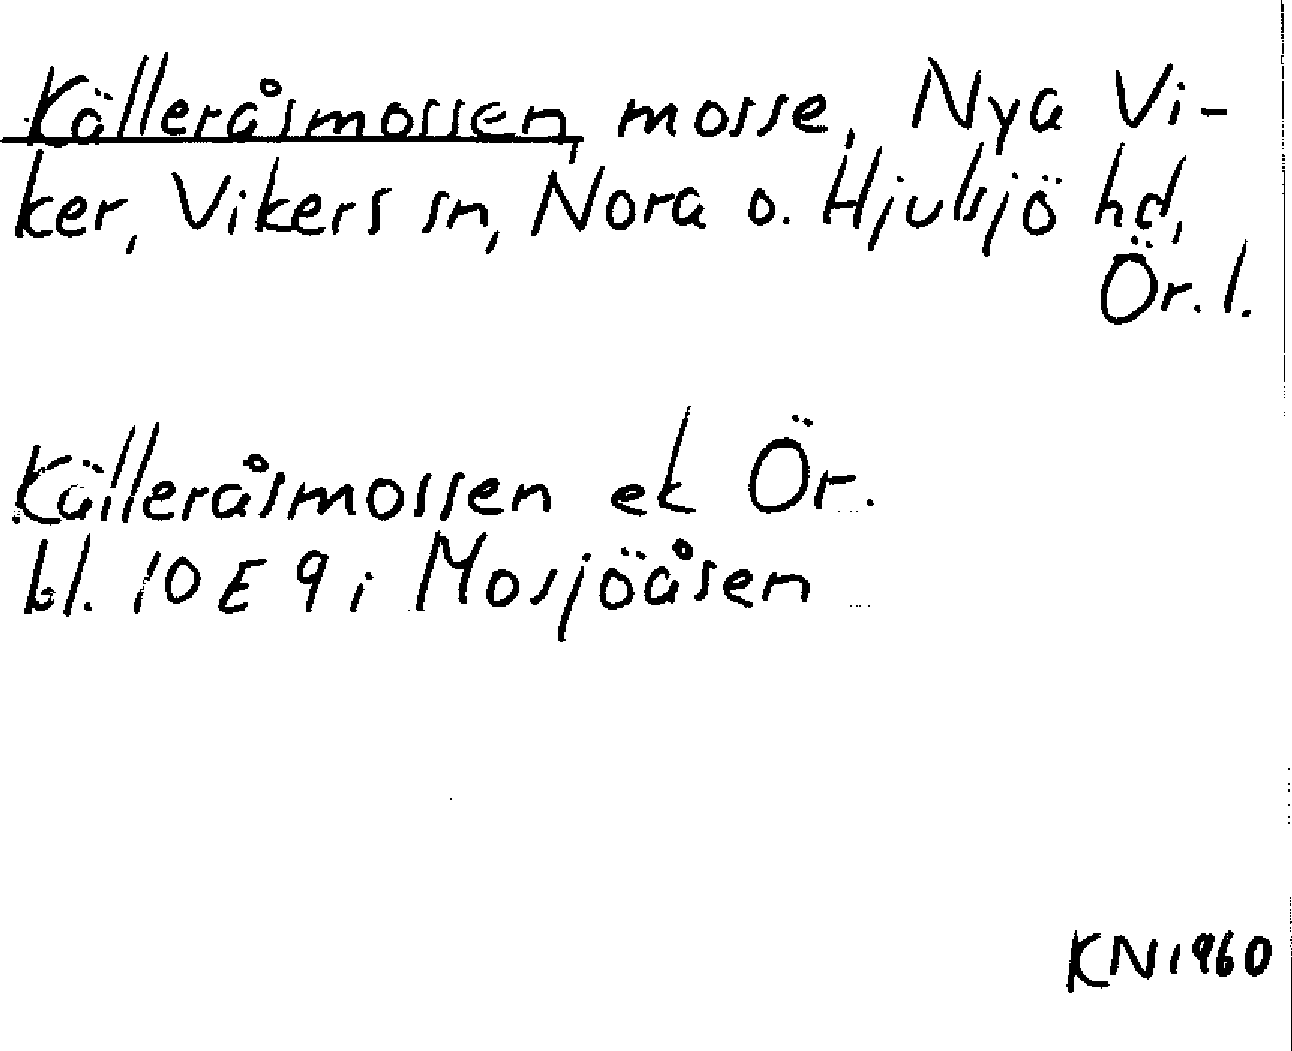 Källeråsmossen, mosse, Nya Vi-
ker, Vikers sn, Nora o. Hjulsjö hd,
Ör. l.
Källeråsmossen ek Ör.
bl. 10 E 9 i Mosjöåsen
KN 1960